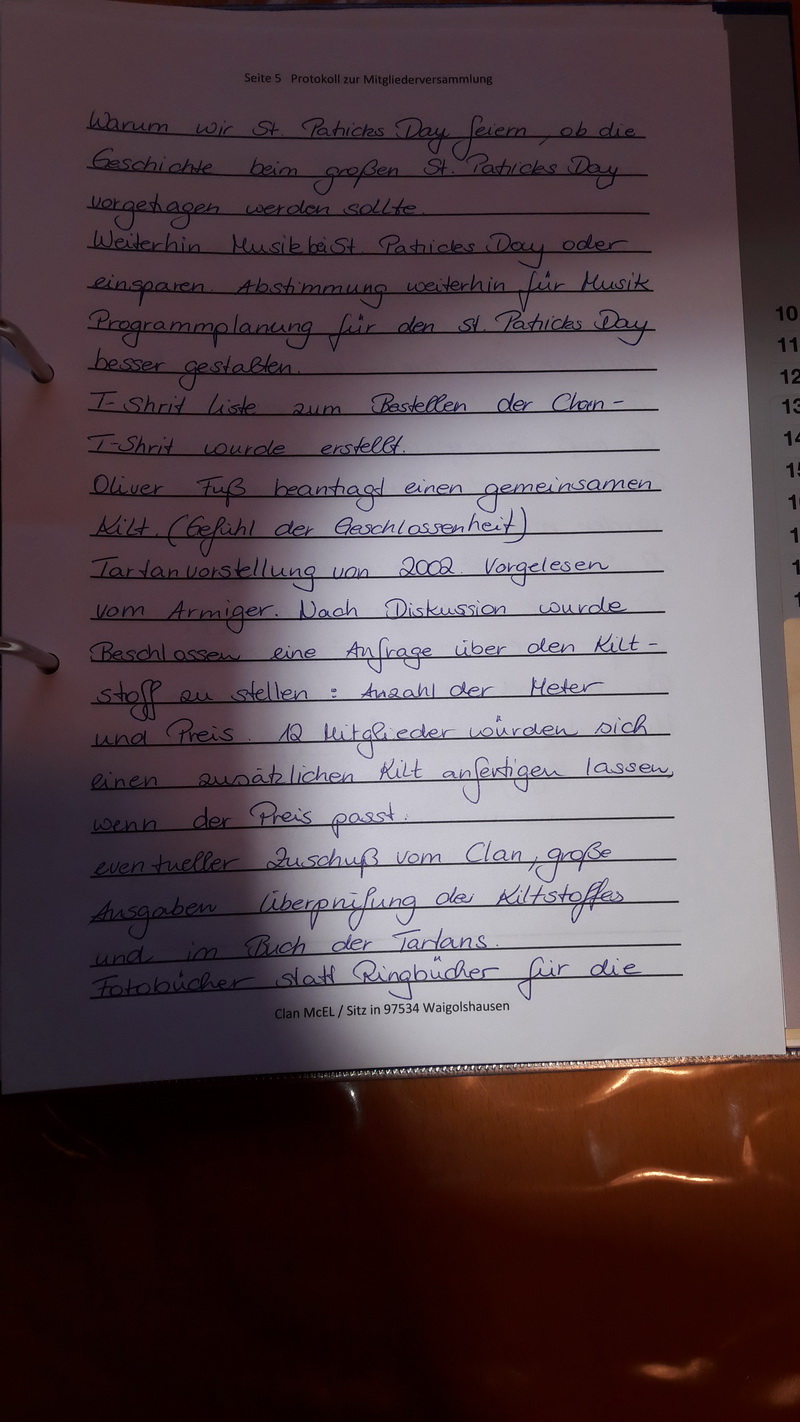 Seite 5 Protokoll zur Mitgliederversammlung
Warum wir St. Patricks Day feiern, ob die
Geschichte beim großen St. Patricks Day
vorgetragen werden sollte.
Weiterhin Musik bei St. Patricks Day oder
einsparen. Abstimmung weiterhin für Musik
Programmplanung für den St. Patricks Day
besser gestalten.
T-Shrit liste zum Bestellen der Clan-
T-Shrit wurde erstellt.
Oliver Fuß beantragt einen gemeinsamen
Kilt. (Gefühl der Geschlossenheit)
Tartanvorstellung von 2002. Vorgelesen
vom Armiger. Nach Diskussion wurde
Beschlossen eine Anfrage über den Kilt-
stoff zu stellen : Anzahl der Meter
und Preis. 12 Mitglieder würden sich
einen zusätzlichen Kilt anfertigen lassen,
wenn der Preis passt.
eventueller Zuschuß vom Clan, große
Ausgaben Überprüfung des Kiltstoffes
und im Buch der Tartans.
Fotobücher statt Ringbücher für die
Clan McEL / Sitz in 97534 Waigolshausen
10
11
12
13